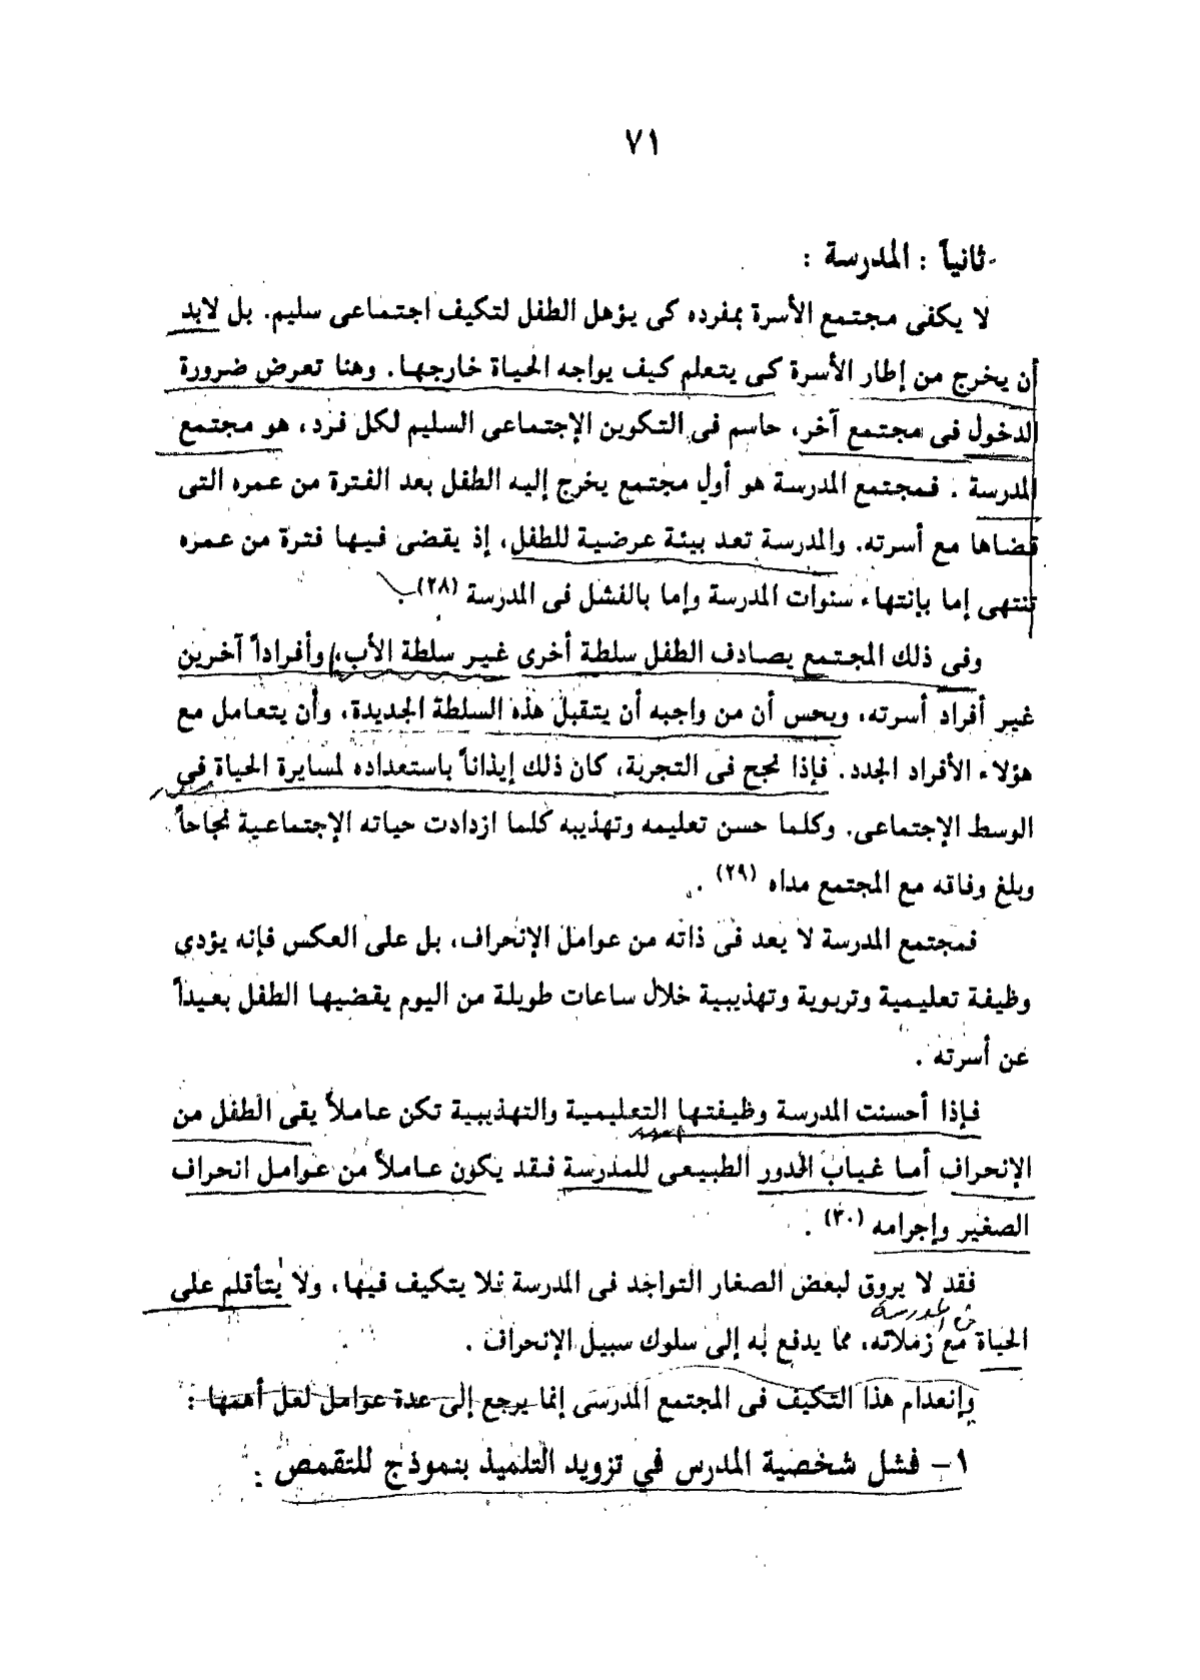 ٧١
- ثانياً : المدرسة :
لا يكفى مجتمع الأسرة بمفرده كى يؤهل الطفل لتكيف اجتماعى سليم. بل لابد
أن يخرج من إطار الأسرة كى يتعلم كيف يواجه الحياة خارجها. وهنا تعرض ضرورة
الدخول فى مجتمع آخر، حاسم فى التكوين الإجتماعى السليم لكل فرد، هو مجتمع
المدرسة . فمجتمع المدرسة هو أول مجتمع يخرج إليه الطفل بعد الفترة من عمره التى
قضاها مع أسرته. والمدرسة تعد بيئة عرضية للطفل، إذ يقضى فيها فترة من عمره
تنتهى إما بإنتهاء سنوات المدرسة وإما بالفشل فى المدرسة (٢٨).
وفى ذلك المجتمع يصادف الطفل سلطة أخرى غير سلطة الأب، وأفراداً آخرين
غير أفراد أسرته، ويحس أن من واجبه أن يتقبل هذه السلطة الجديدة، وأن يتعامل مع
هؤلاء الأفراد الجدد. فإذا نجح فى التجربة، كان ذلك إيذاناً باستعداده لمسايرة الحياة في
الوسط الإجتماعى. وكلما حسن تعليمه وتهذيبه كلما ازدادت حياته الإجتماعية نجاحاً
وبلغ وفاقه مع المجتمع مداه (٢٩) .
فمجتمع المدرسة لا يعد فى ذاته من عوامل الإنحراف، بل على العكس فإنه يؤدي
وظيفة تعليمية وتربوية وتهذيبية خلال ساعات طويلة من اليوم يقضيها الطفل بعيداً
عن أسرته .
فإذا أحسنت المدرسة وظيفتها التعليمية والتهذيبية تكن عاملاً يقى الطفل من
الإنحراف أما غياب الدور الطبيعى للمدرسة فقد يكون عاملاً من عوامل انحراف
الصغير وإجرامه (٣٠) .
فقد لا يروق لبعض الصغار التواجد فى المدرسة فلا يتكيف فيها، ولا يتأقلم على
فى المدرسة
الحياة مع زملائه، مما يدفع به إلى سلوك سبيل الإنحراف .
وإنعدام هذا التكيف فى المجتمع المدرسى إنما يرجع إلى عدة عوامل لعل أهمها :
١- فشل شخصية المدرس في تزويد التلميذ بنموذج للتقمص :